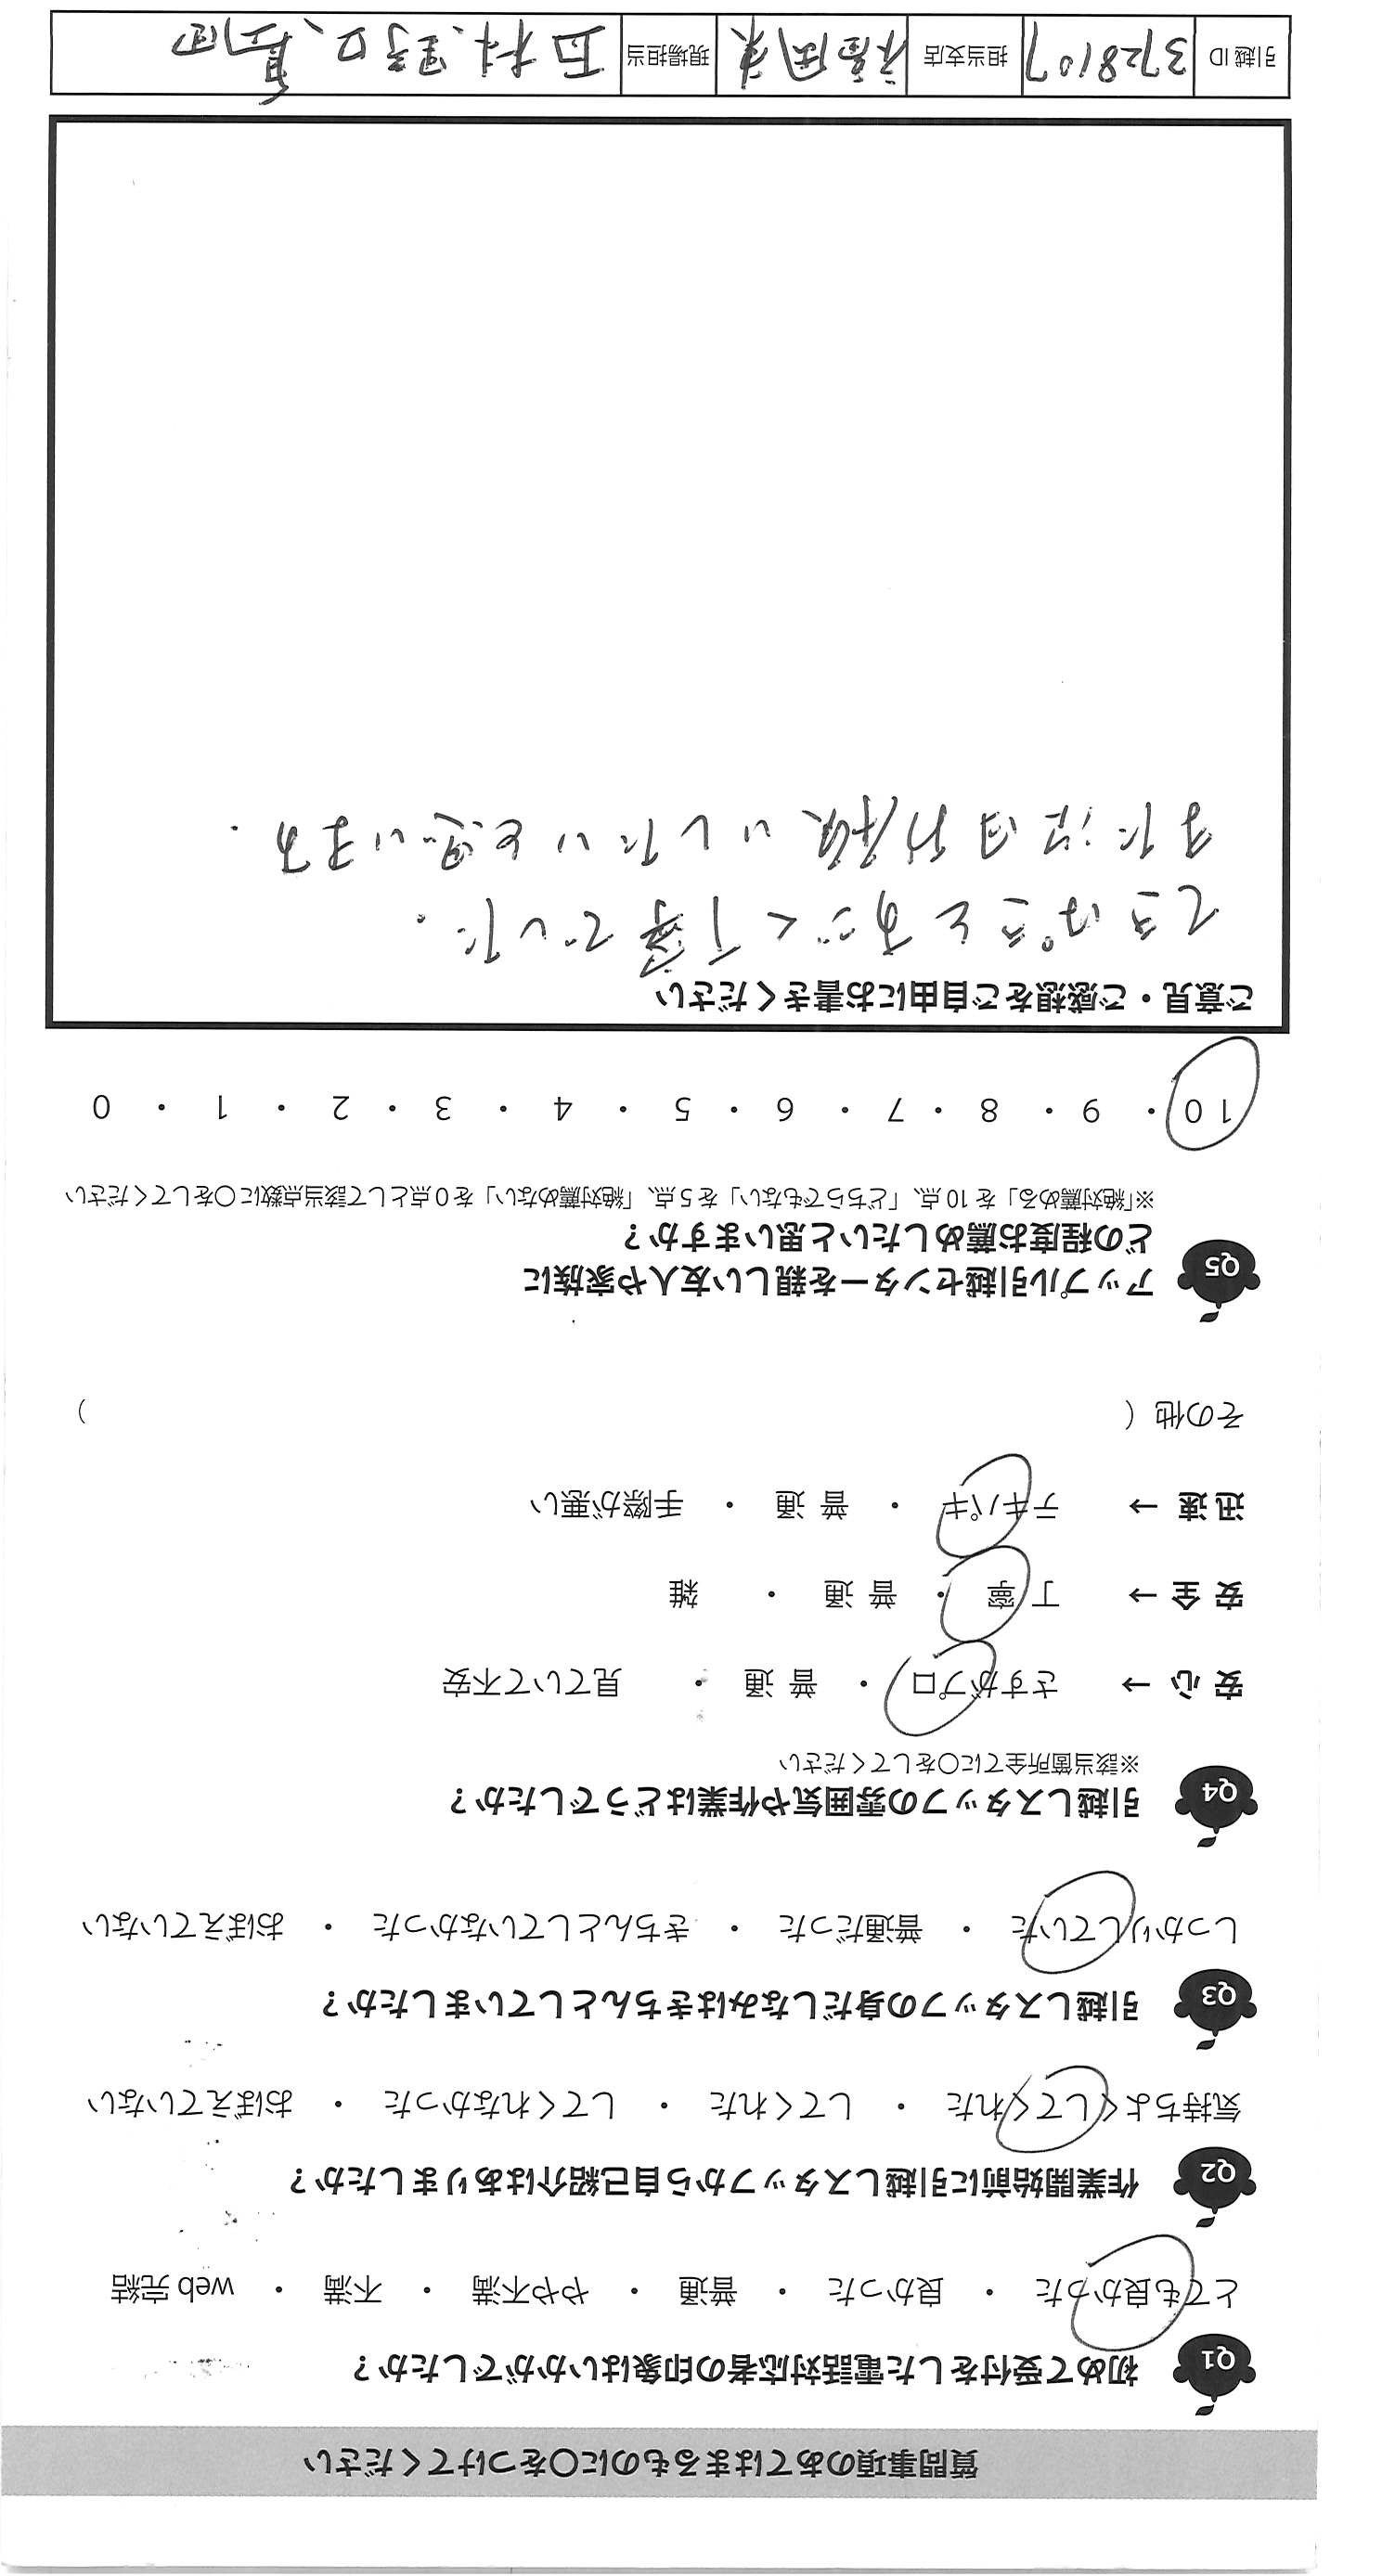 質問事項のあてはまるものに○をつけてください
Q1 初めて受付をした電話対応者の印象はいかがでしたか？
とても良かった ・ 良かった ・ 普通 ・ やや不満 ・ 不満 ・ web 完結
Q2 作業開始前に引越しスタッフから自己紹介はありましたか？
気持ちよくしてくれた ・ してくれた ・ してくれなかった ・ おぼえていない
Q3 引越しスタッフの身だしなみはきちんとしていましたか？
しっかりしていた ・ 普通だった ・ きちんとしていなかった ・ おぼえていない
Q4 引越しスタッフの雰囲気や作業はどうでしたか？
※該当箇所全てに○をしてください
安 心 → さすがプロ ・ 普 通 ・ 見ていて不安
安 全 → 丁 寧 ・ 普 通 ・ 雑
迅 速 → テキパキ ・ 普 通 ・ 手際が悪い
その他（ ）
Q5 アップル引越センターを親しい友人や家族に
どの程度お薦めしたいと思いますか？
※「絶対薦める」を 10 点、「どちらでもない」を 5 点、「絶対薦めない」を 0 点として該当点数に○をしてください
10 ・ 9 ・ 8 ・ 7 ・ 6 ・ 5 ・ 4 ・ 3 ・ 2 ・ 1 ・ 0
ご意見・ご感想をご自由にお書きください
てきぱきとすごく丁寧でした.
また次回お願いしたいと思います.
引越 ID 3728107 担当支店 福岡東 現場担当 西村、野口、長田